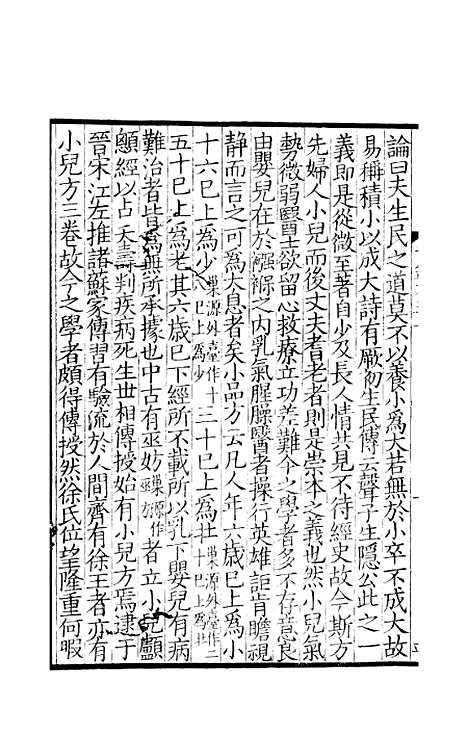 論曰夫生民之道莫不以養小爲大若無於小卒不成大故
易稱積小以成大詩有厥初生民傳云聲子生隱公此之一
義即是從微至著自少及長人情共見不待經史故今斯方
先婦人小兒而後丈夫耆老者則是崇本之義也然小兒氣
勢微弱醫士欲留心救療立功差難今之學者多不存意良
由嬰兒在於襁褓之内乳氣腥臊醫者操行英雄詎肯瞻視
静而言之可爲太息者矣小品方云凡人年六歲已上爲小
十六已上爲少巢源外臺作十八已上爲少三十已上爲壯巢源外臺作二十已上爲壯
五十已上爲老其六歲已下經所不載所以乳下嬰兒有病
難治者皆爲無所承據也中古有巫妨巢源作巫方者立小兒顱
顖經以占夭壽判疾病死生世相傳授始有小兒方焉逮于
晉宋江左推諸蘇家傳習有驗流於人間齊有徐王者亦有
小兒方三卷故今之學者頗得傳授然徐氏位望隆重何暇